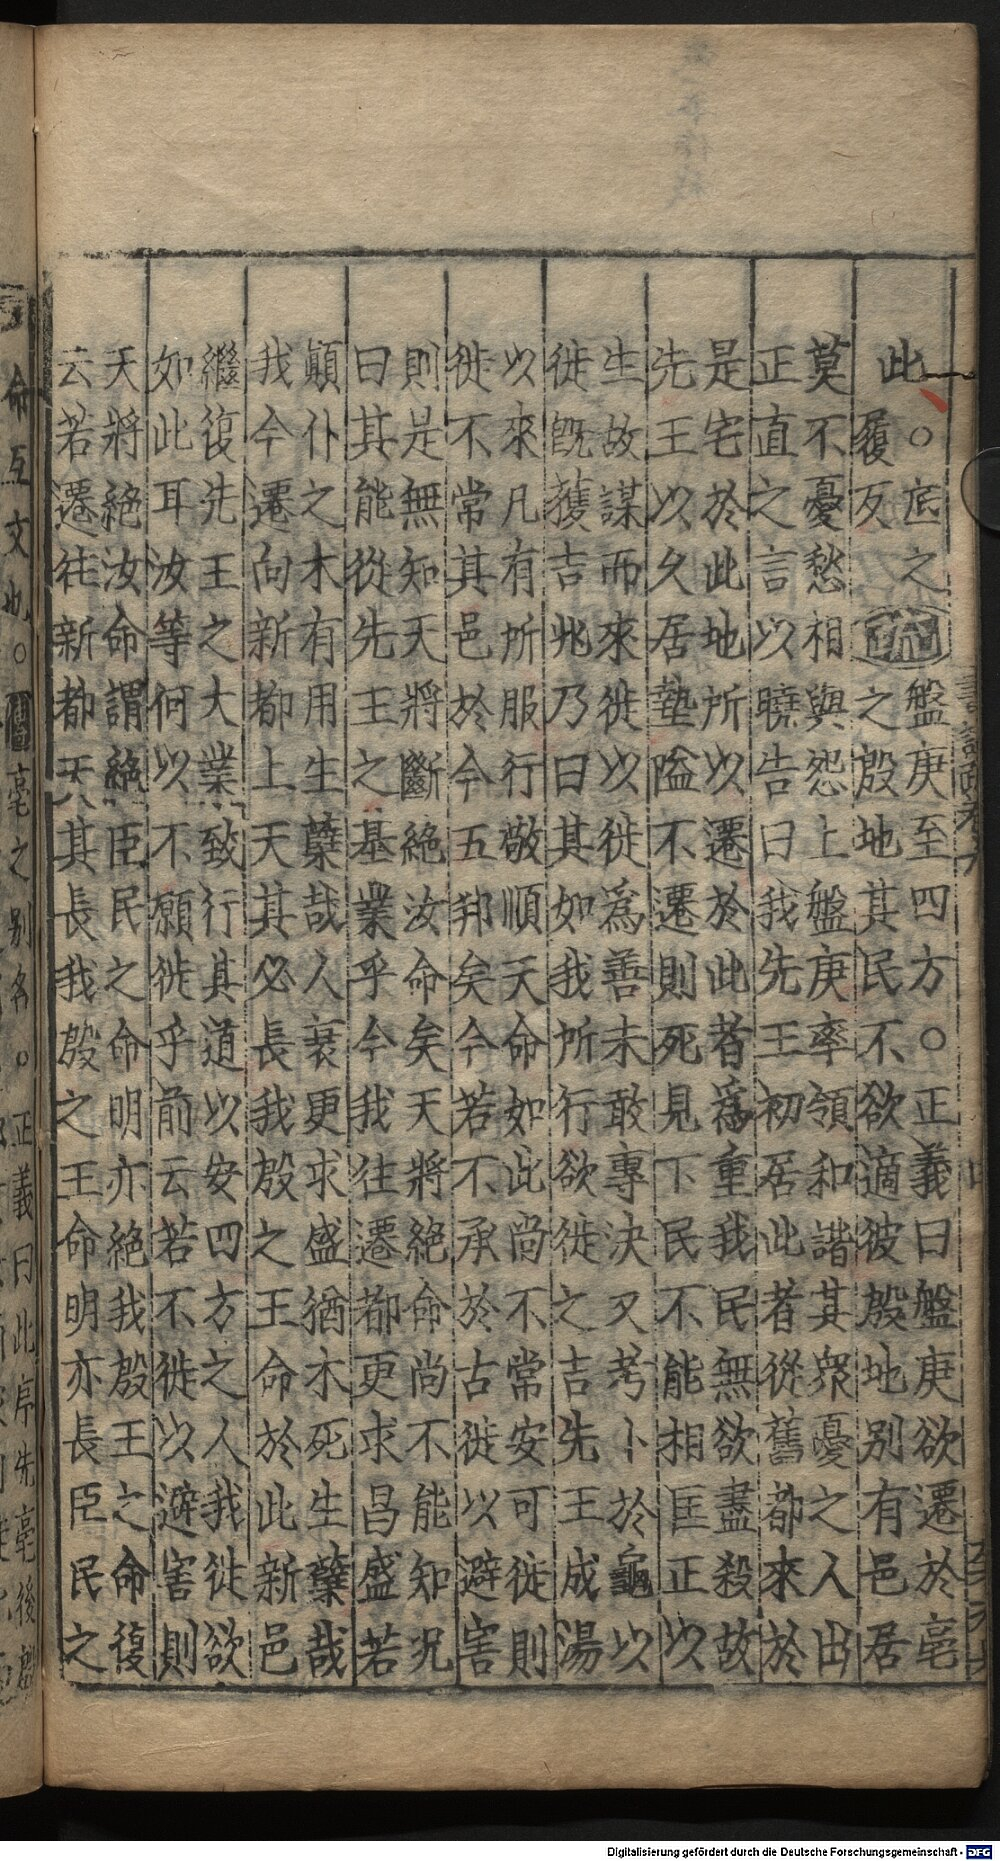 此
○底之
履反
疏
盤庚至四方○正義曰盤庚欲遷於亳
之殷地其民不欲適彼殷地别有邑居
莫不憂愁相與怨上盤庚率領和諧其衆憂之人出
正直之言以曉告曰我先王初居此者從舊都來於
是宅於此地所以遷於此者為重我民無欲盡殺故
先王以久居墊隘不遷則死見下民不能相匡正以
生故謀而來徙以徙為善未敢專決又考卜於龜以
徙既獲吉兆乃曰其如我所行欲徙之吉先王成湯
以來凡有所服行敬順天命如此尚不常安可徙則
徙不常其邑於今五邦矣今若不承於古徙以避害
則是無知天將斷絕汝命矣天將絕命尚不能知況
曰其能從先王之基業乎今我往遷都更求昌盛若
顛仆之木有用生蘖哉人衰更求盛猶木死生蘖哉
我今遷向新都上天其必長我殷之王命於此新邑
繼復先王之大業致行其道以安四方之人我徙欲
如此耳汝等何以不願徙乎前云若不徙以避害則
天將絕汝命謂絕臣民之命明亦絕我殷王之命復
云若遷往新都天其長我殷之王命明亦長臣民之
命互文也○傳亳之别名○正義曰此序先亳後殷
Digitalisierung gefördert durch die Deutsche Forschungsgemeinschaft - DFG